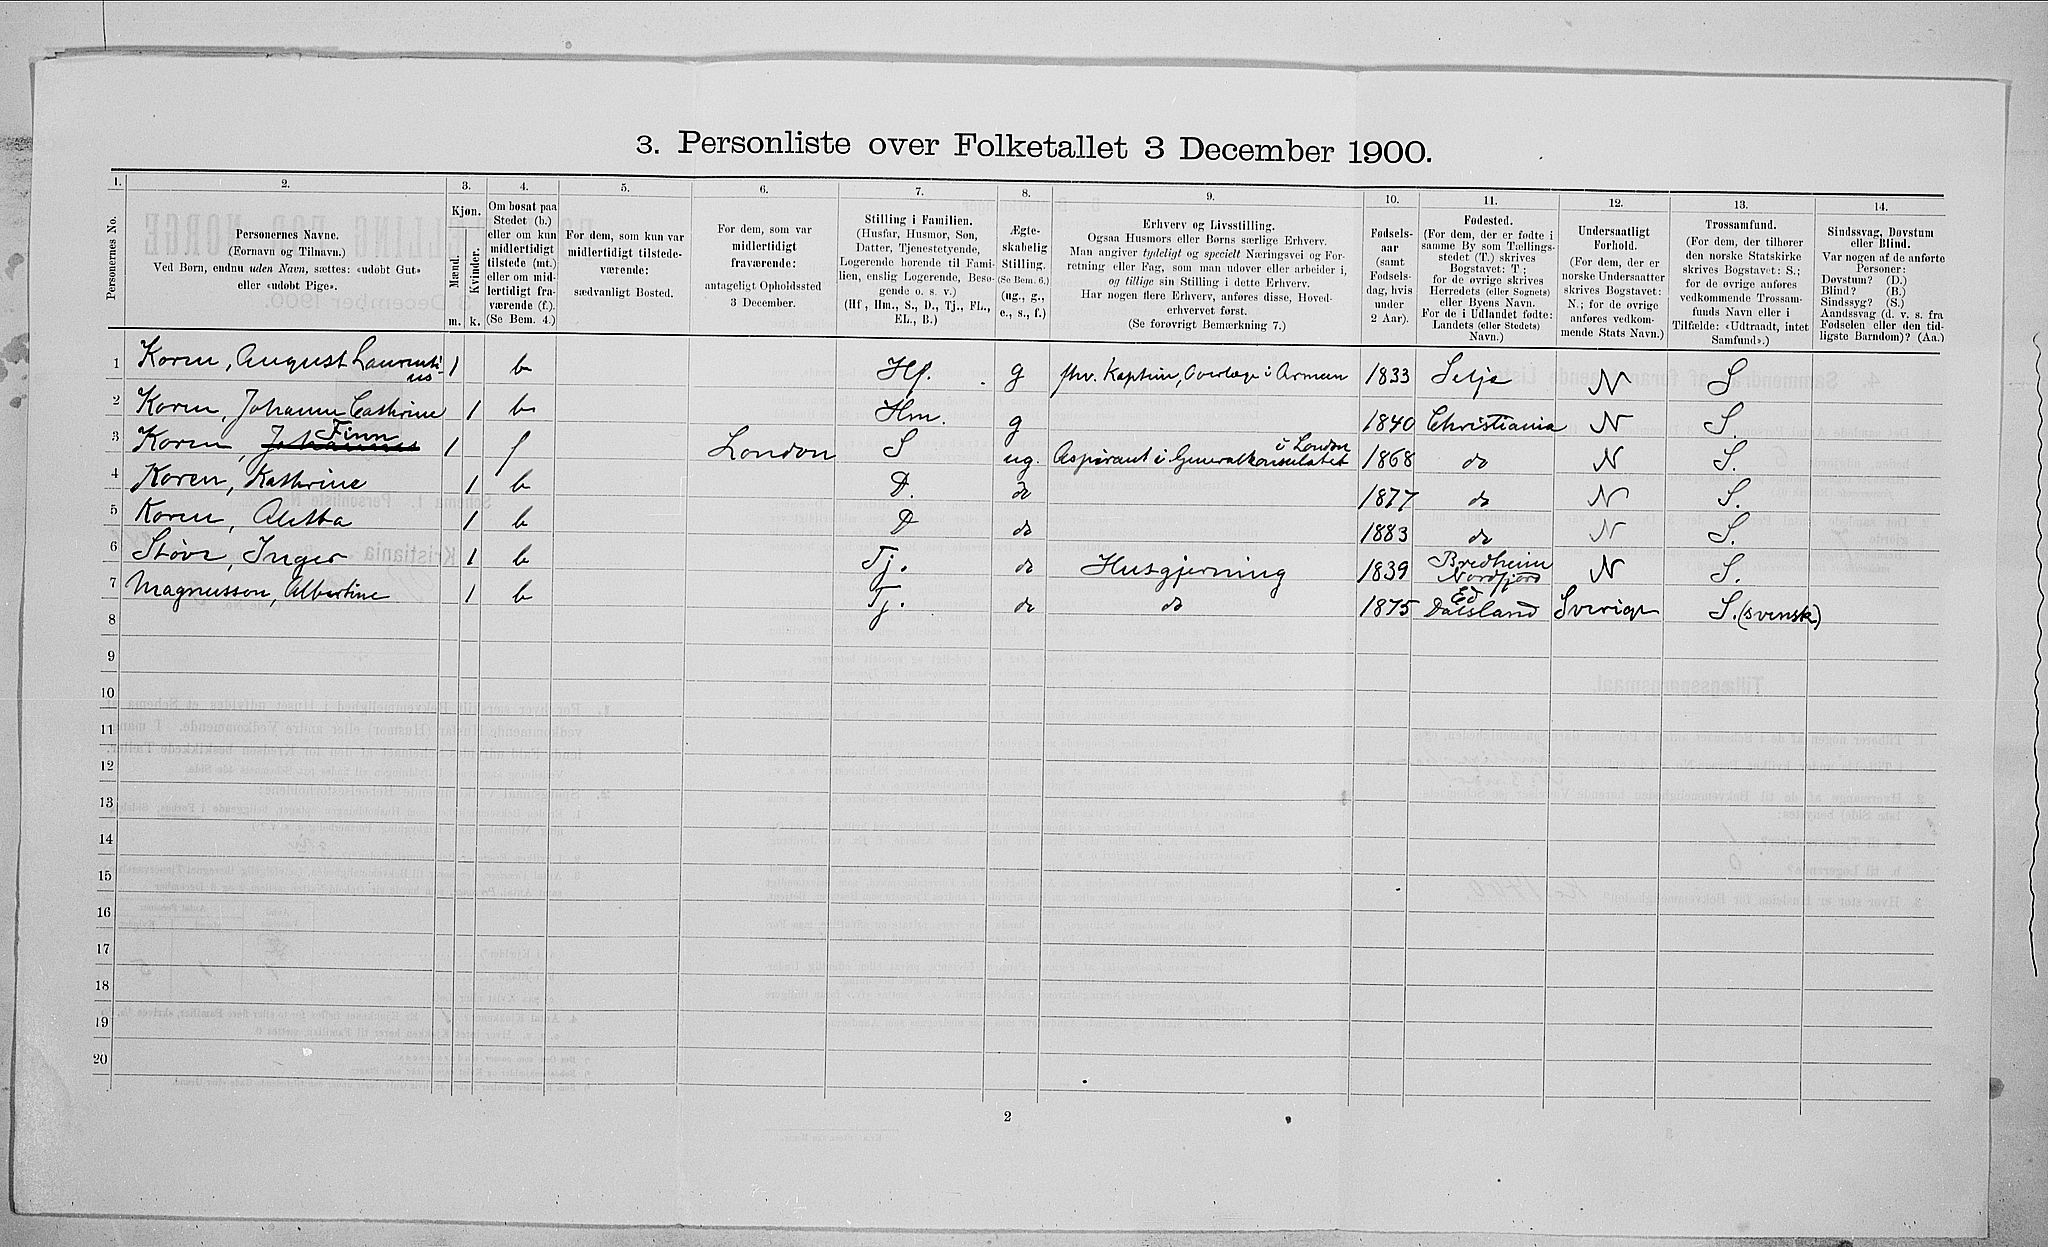 3. Personliste over Folketallet 3 December 1900.
1. 2. 3. 4. 5. 6. 7. 8. 9. 10. 11. 12. 13. 14.
Personernes No.
Personernes Navne.
(Fornavn og Tilnavn.)
Ved Børn, endnu uden Navn, sættes: «udøbt Gut»
eller «udøbt Pige».
Kjøn.
Mænd. Kvinder.
m. k.
Om bosat paa
Stedet (b.)
eller om kun
midlertidigt
tilstede (mt.)
eller om mid-
lertidigt fra-
værende (f.).
(Se Bem. 4.)
For dem, som kun var
midlertidigt tilstede-
værende:
sædvanligt Bosted.
For dem, som var
midlertidigt
fraværende:
antageligt Opholdssted
3 December.
Stilling i Familien.
(Husfar, Husmor, Søn,
Datter, Tjenestetyende,
Logerende hørende til Fami-
lien, enslig Logerende, Besø-
gende o. s. v.)
(Hf., Hm., S., D., Tj., FL.,
EL., B.)
Ægte-
skabelig
Stilling.
(Se Bem. 6.)
(ug., g.,
e., s., f.)
Erhverv og Livsstilling.
Ogsaa Husmors eller Børns særlige Erhverv.
Man angiver tydeligt og specielt Næringsvei og For-
retning eller Fag, som man udøver eller arbeider i,
og tillige sin Stilling i dette Erhverv.
Har nogen flere Erhverv, anføres disse, Hoved-
erhvervet først.
(Se forøvrigt Bemærkning 7.)
Fødsels-
aar
(samt
Fødsels-
dag, hvis
under
2 Aar).
Fødested.
(For dem, der er fødte i
samme By som Tællings-
stedet (T.) skrives
Bogstavet: T;
for de øvrige skrives
Herredets (eller Sognets)
eller Byens Navn.
For de i Udlandet fødte:
Landets (eller Stedets)
Navn.)
Undersaatligt
Forhold.
(For dem, der er
norske Undersaatter
skrives Bogstavet:
N.; for de øvrige
anføres vedkom-
mende Stats Navn.)
Trossamfund.
(For dem, der tilhører
den norske Statskirke
skrives Bogstavet: S.;
for de øvrige anføres
vedkommende Trossam-
funds Navn eller i
Tilfælde: «Udtraadt, intet
Samfund».)
Sindssvag, Døvstum
eller Blind.
Var nogen af de anførte
Personer:
Døvstum? (D.)
Blind? (B.)
Sindssyg? (S.)
Aandssvag (d. v. s. fra
Fødselen eller den tid-
ligste Barndom)? (Aa.)
1 Koren, August Laurenti- 1 b Hf. g fhv. Kaptein, Overlæge i Armeen 1833 Selje N S
us
2 Koren, Johanne Cathrine 1 b Hm. g 1840 Christiania N S.
Finn i London
3 Koren, Johannes 1 f London S ug. Aspirant i Generalkonsulatet 1868 do N S.
4 Koren, Kathrine 1 b D. do 1877 do N S.
5 Koren, Aletta 1 b D do 1883 do N S.
6 Støve, Inger 1 b Tj. do Husgjerning 1839 Bredheim N S.
Nordfjord
7 Magnusson, Albertine 1 b Tj. do do 1875 Ed Sverige S. (svensk)
Dalsland
8
9
10
11
12
13
14
15
16
17
18
19
20
2